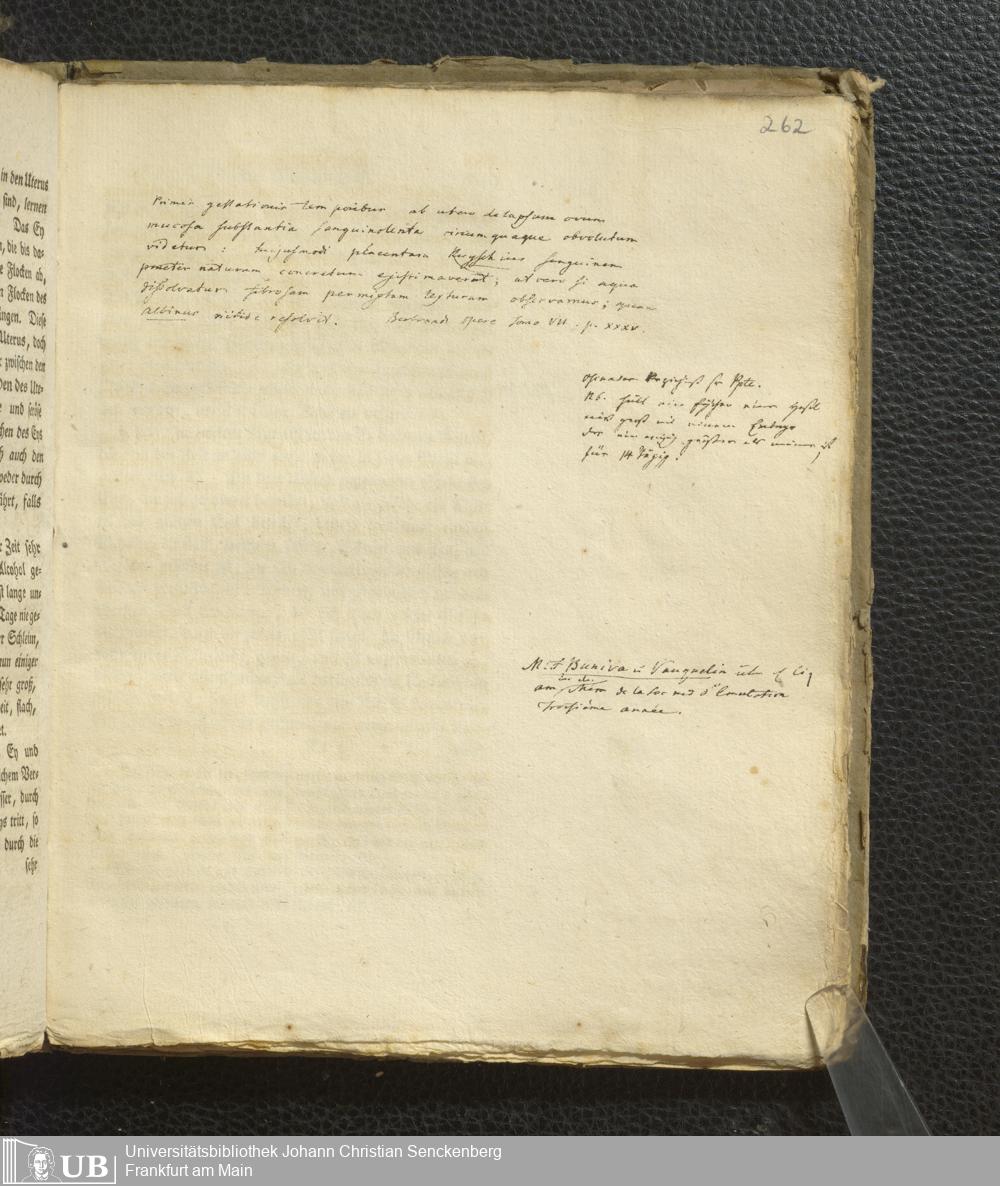 in den Uterus
sind, lernen
Das Ey
die bis da=
Flocken ab,
Flocken des
Diese
Uterus, doch
zwischen den
des Ute=
und seröse
des Eys
auch den
weder durch
falls
Zeit sehr
Alcohol ge=
lange un=
Tage nie ge=
Schleim,
nun einiger
sehr groß,
flach,
Ey und
Ver=
durch
tritt, so
durch die
sehr
262
Primis gestationis temporibus ab utero delapsum ovum
mucosa substantia sanguinolenta circumquaque obvolutum
videtur: hujusmodi placentam Ruyschius sanguinem
praeter naturam concretum existimaverat; at vero si aqua
dissolvatur fibrosam permixtam texturam observamus; quam
Albinus nitide resolvit. Bertrandi opere Tomo VII. p. XXXV.
Osiander
Nb.
groß mit einem Embryo
der größer als meiner ist
für 14 Tägig!
M. F Buniva u Vauquelin
in de
am Mem de la Soc med d'Emulation
Troisième année.
UB
Universitätsbibliothek Johann Christian Senckenberg
Frankfurt am Main